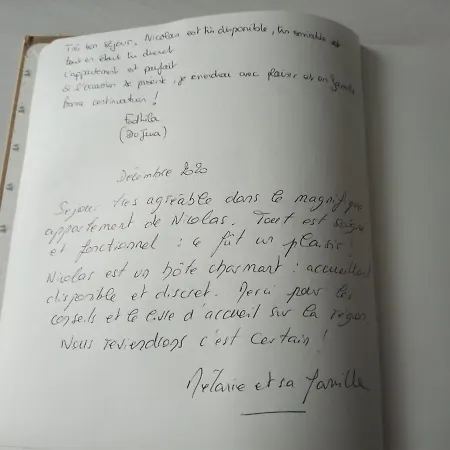 Très bon séjour, Nicolas est très disponible, très serviable et
tout en étant très discret
L'appartement est parfait
si l'occasion se présente, je reviendrai avec plaisir et en famille
bonne continuation !
Fedhila
Décembre 2020
Sejour très agréable dans le magnifique
appartement de Nicolas. Tout est
et fonctionnel : ce fût un plaisir !
Nicolas est un hôte charmant : accueillant
disponible et discret. Merci pour les
conseils et le livre d'accueil sur la région
Nous reviendrons c'est certain !
Mélanie et sa famille